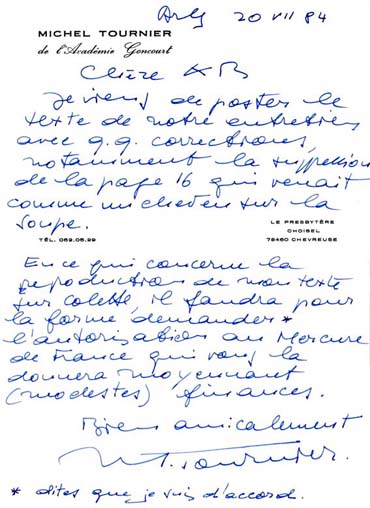 Arles 20 VII 84
MICHEL TOURNIER
de l'Académie Goncourt
Chère AB
Je viens de poster le
texte de notre entretien
avec q.q. corrections,
notamment la suppression
de la page 16 qui venait
comme un cheveu sur la
soupe.
LE PRESBYTÈRE
CHOISEL
TÉL. 052.05.29
78460 CHEVREUSE
En ce qui concerne la
reproduction de mon texte
sur Colette, il faudra pour
la forme demander *
l'autorisation au Mercure
de France qui vous la
donnera moyennant
(modestes) finances.
Bien amicalement
M. Tournier.
* dites que je suis d'accord.